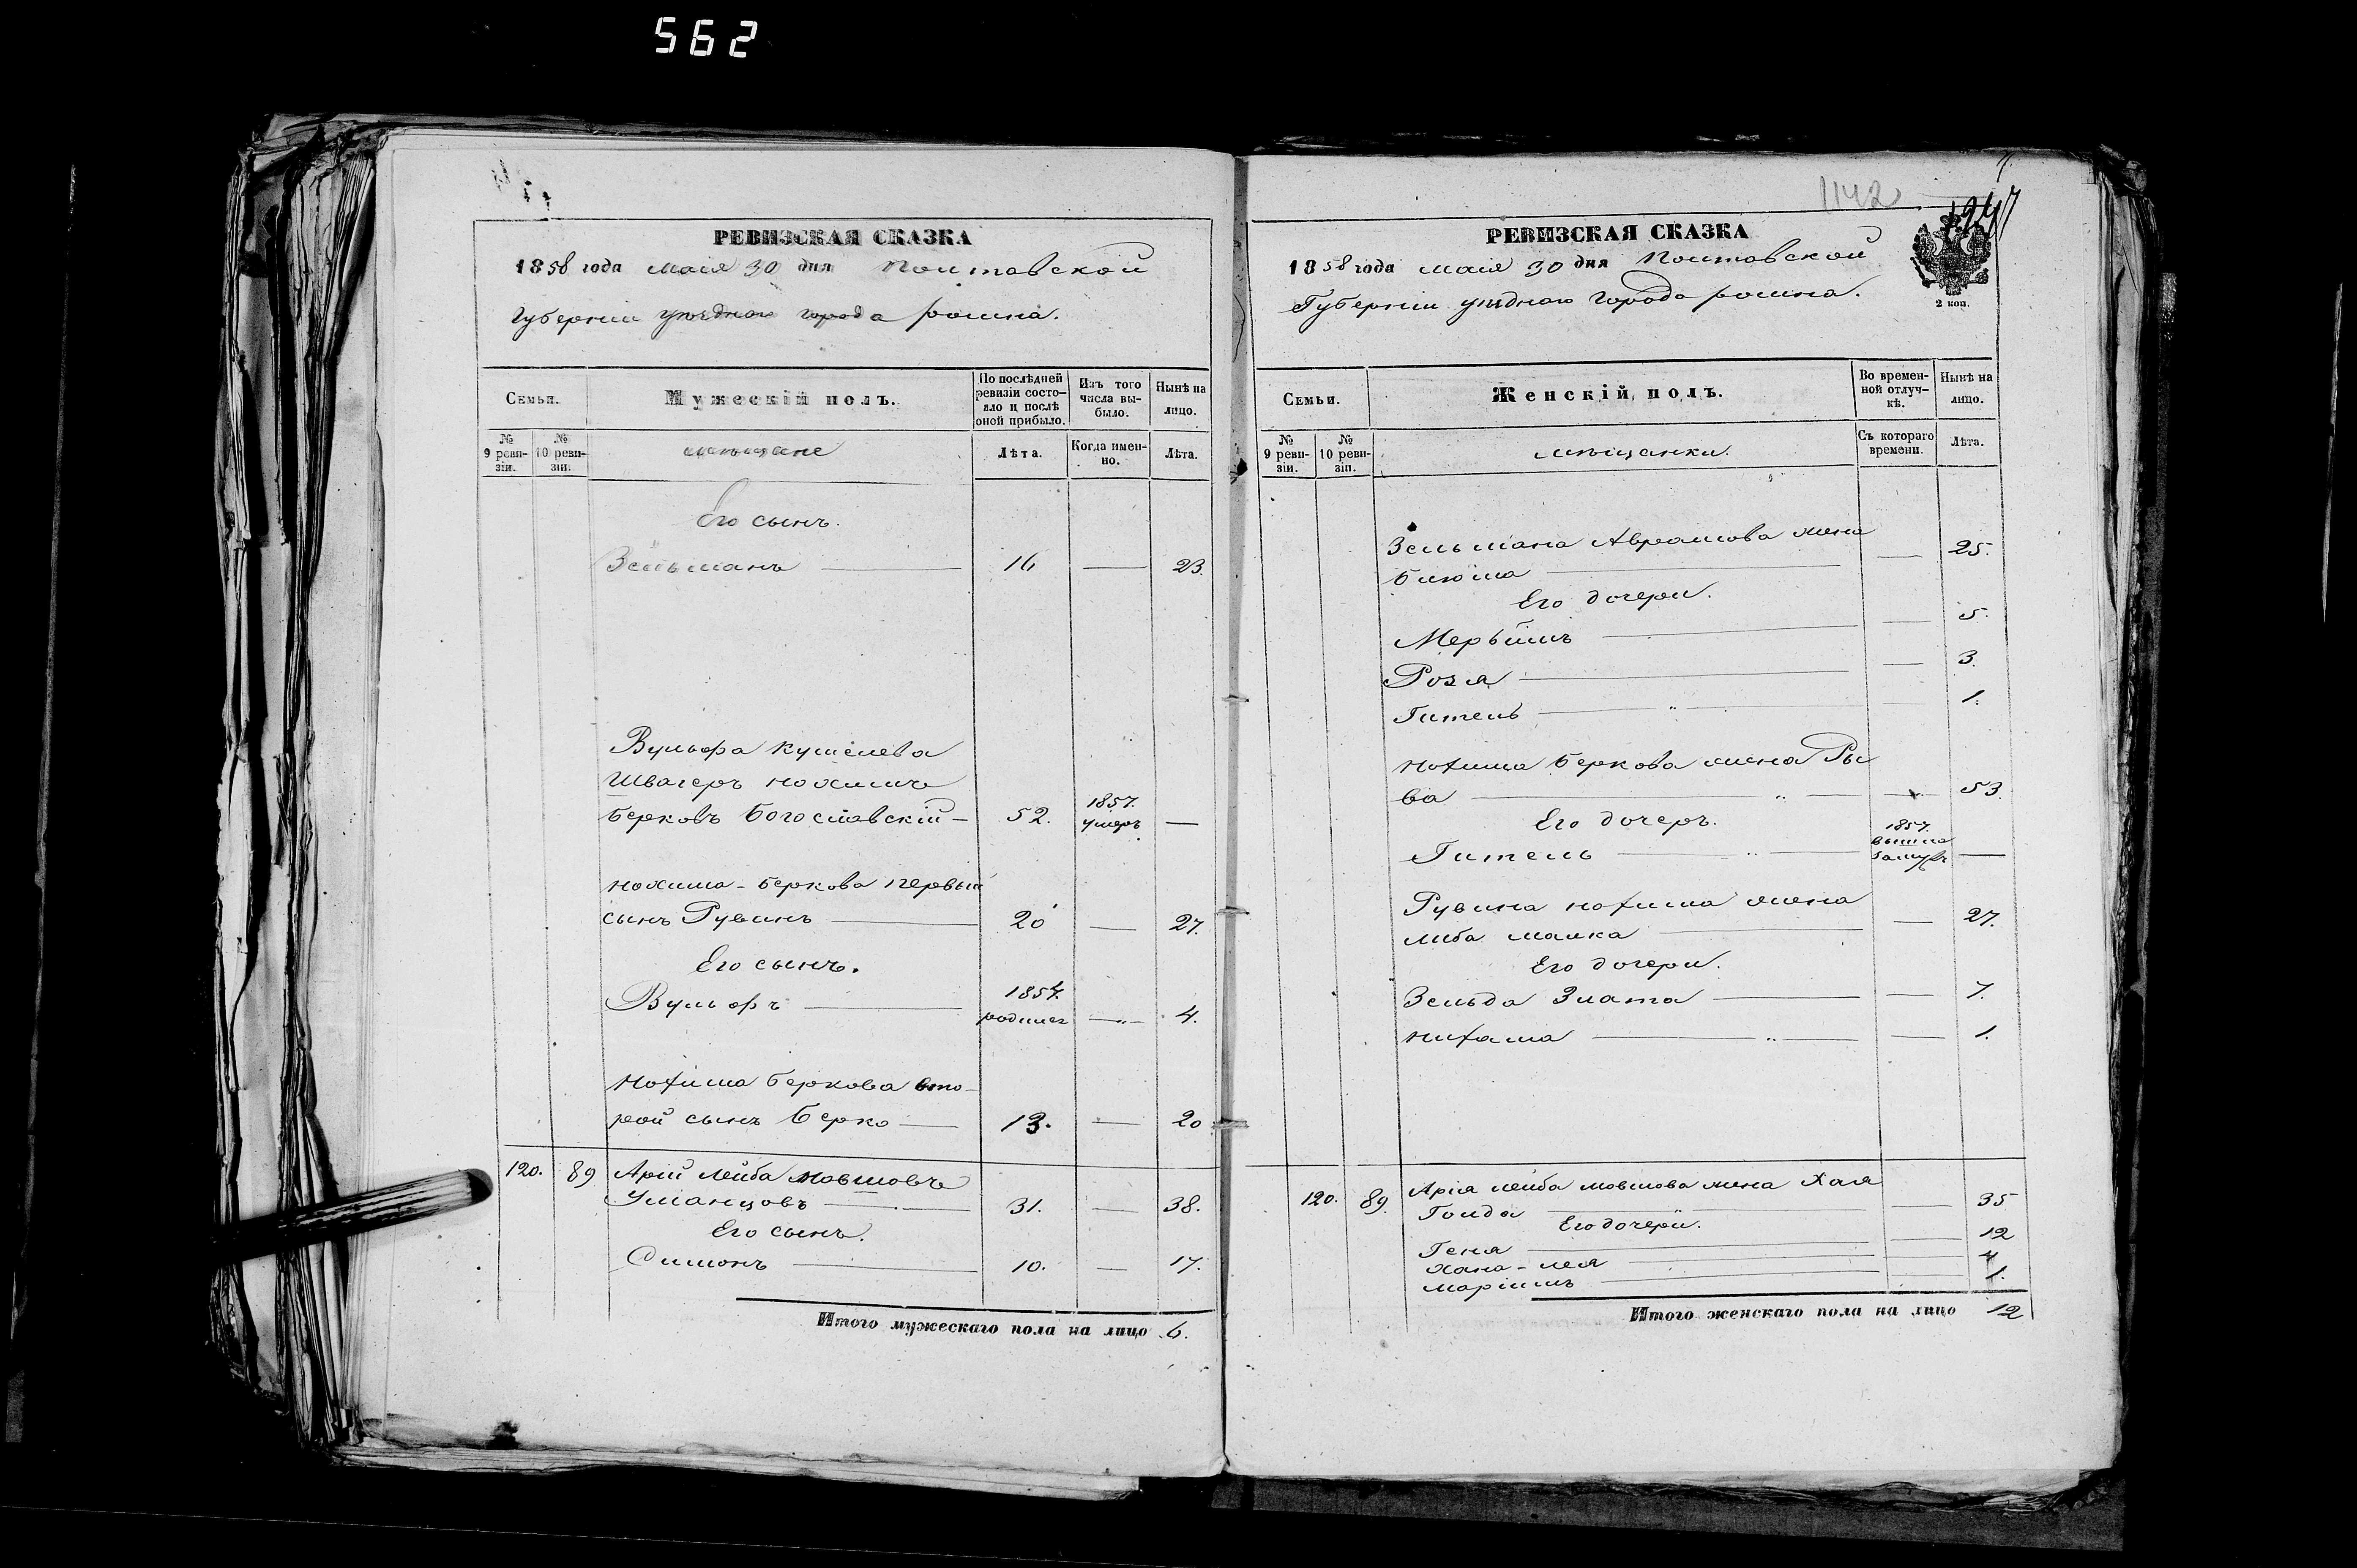 562
РЕВИЗСКАЯ СКАЗКА
1858 года маія 30 дня Полтавской
Губерніи уѣзднаго города ромна.
Семьи.
Мужескій полъ.
По послѣдней ревизіи состояло и послѣ оной прибыло.
Изъ того числа выбыло.
Нынѣ на лицо.
№ 9 ревизіи.
№ 10 ревизіи.
мѣщане
Лѣта.
Когда именно.
Лѣта.
Его сынъ.
Зельманъ — 16 — 23.
Вульфа Кушелева
Швагеръ нохимъ
берковъ богославскій — 52. 1857. умеръ —
нохима-беркова первый
сынъ Рувинъ — 20 — 27.
Его сынъ.
Вульфъ — 1854. родился — 4.
нохима беркова вто-
рой сынъ берко — 13. — 20
120. 89 Арій лейба мовшовъ
Уманцовъ — 31. — 38.
Его сынъ.
Симонъ — 10. — 17.
Итого мужескаго пола на лицо 6.
1142
1247
РЕВИЗСКАЯ СКАЗКА
1858 года маія 30 дня Полтавской
Губерніи уѣзднаго города ромна.
2 коп.
Семьи.
Женскій полъ.
Во временной отлучкѣ.
Нынѣ на лицо.
№ 9 ревизіи.
№ 10 ревизіи.
мѣщанки.
Съ котораго времени.
Лѣта.
Зельмана Аврамова жена
блюма — — 25.
Его дочери.
Мерьймъ — — 5.
Розя — — 3.
Гитель — — 1.
нохима беркова жена Ры
ва — — 53.
Его дочеръ.
Гитель — 1857. вышла замуж —
Рувина нохима жена
либа малка — — 27.
Его дочери.
Зельда Злата — — 7.
нихама — — 1.
120. 89. Арія лейба мовшова жена Хая
Голда — — 35
Его дочери.
Геня — — 12
Хана-лея — — 4
маріимъ — — 1.
Итого женскаго пола на лицо 12